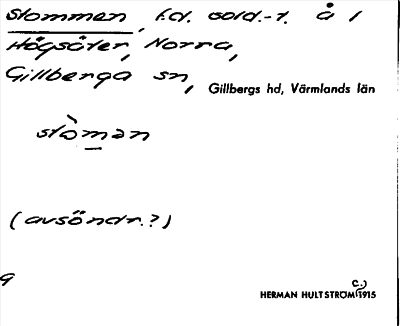 Slommen, f.d. sold.-t. å i
Högsäter, Norra,
Gillberga sn,
Gillbergs hd, Värmlands län
slòmən
(avsöndr.?)
9
C.)
HERMAN HULTSTRÖM 1915